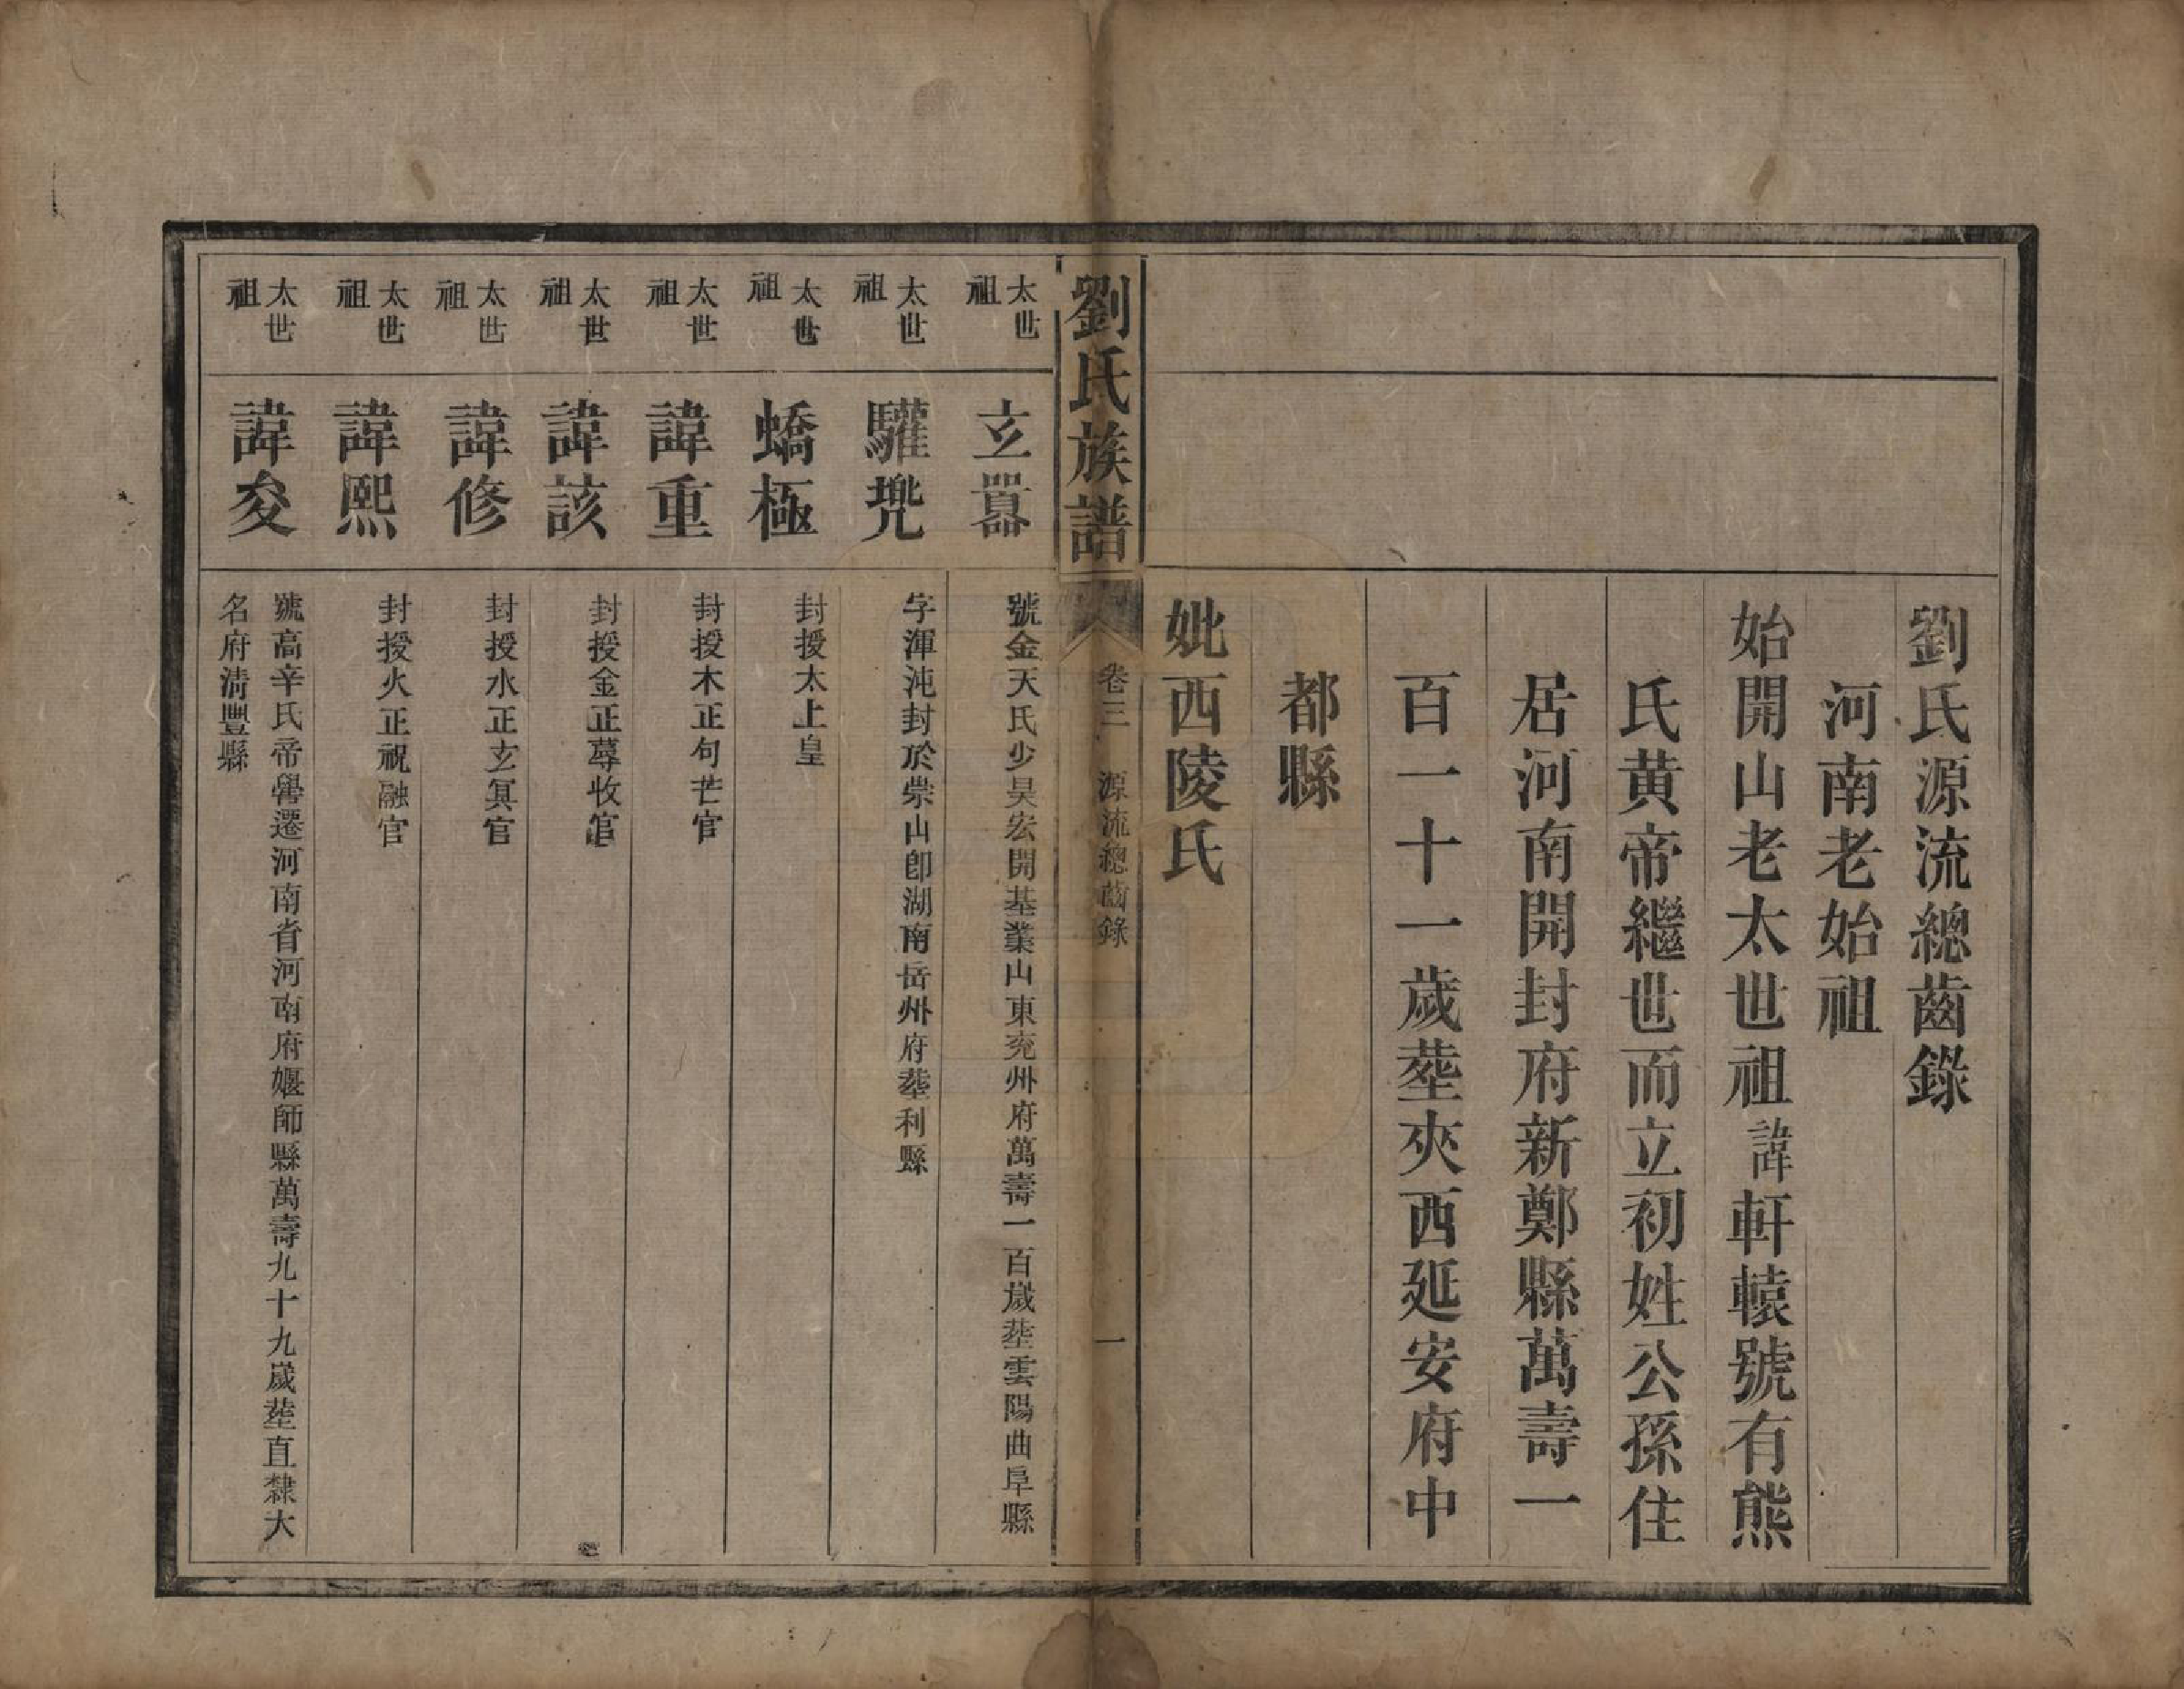 劉氏源流總齒錄
河南老始祖
始開山老太世祖諱軒轅號有熊
氏黃帝繼世而立初姓公孫住
居河南開封府新鄭縣萬壽一
百一十一歲塟夾西延安府中
都縣
妣西陵氏
劉氏族譜 卷三 源流總齒錄 一
太世祖 玄囂 號金天氏少昊宏開基業山東兖州府萬壽一百歲塟雲陽曲阜縣
太世祖 驩兠 字渾沌封於崇山卽湖南岳州府塟利縣
太世祖 蟜極 封授太上皇
太世祖 諱重 封授木正句芒官
太世祖 諱該 封授金正蓐收官
太世祖 諱修 封授水正玄冥官
太世祖 諱熙 封授火正祝融官
太世祖 諱夋 號高辛氏帝嚳遷河南省河南府堰師縣萬壽九十九歲塟直隸大
名府清豐縣